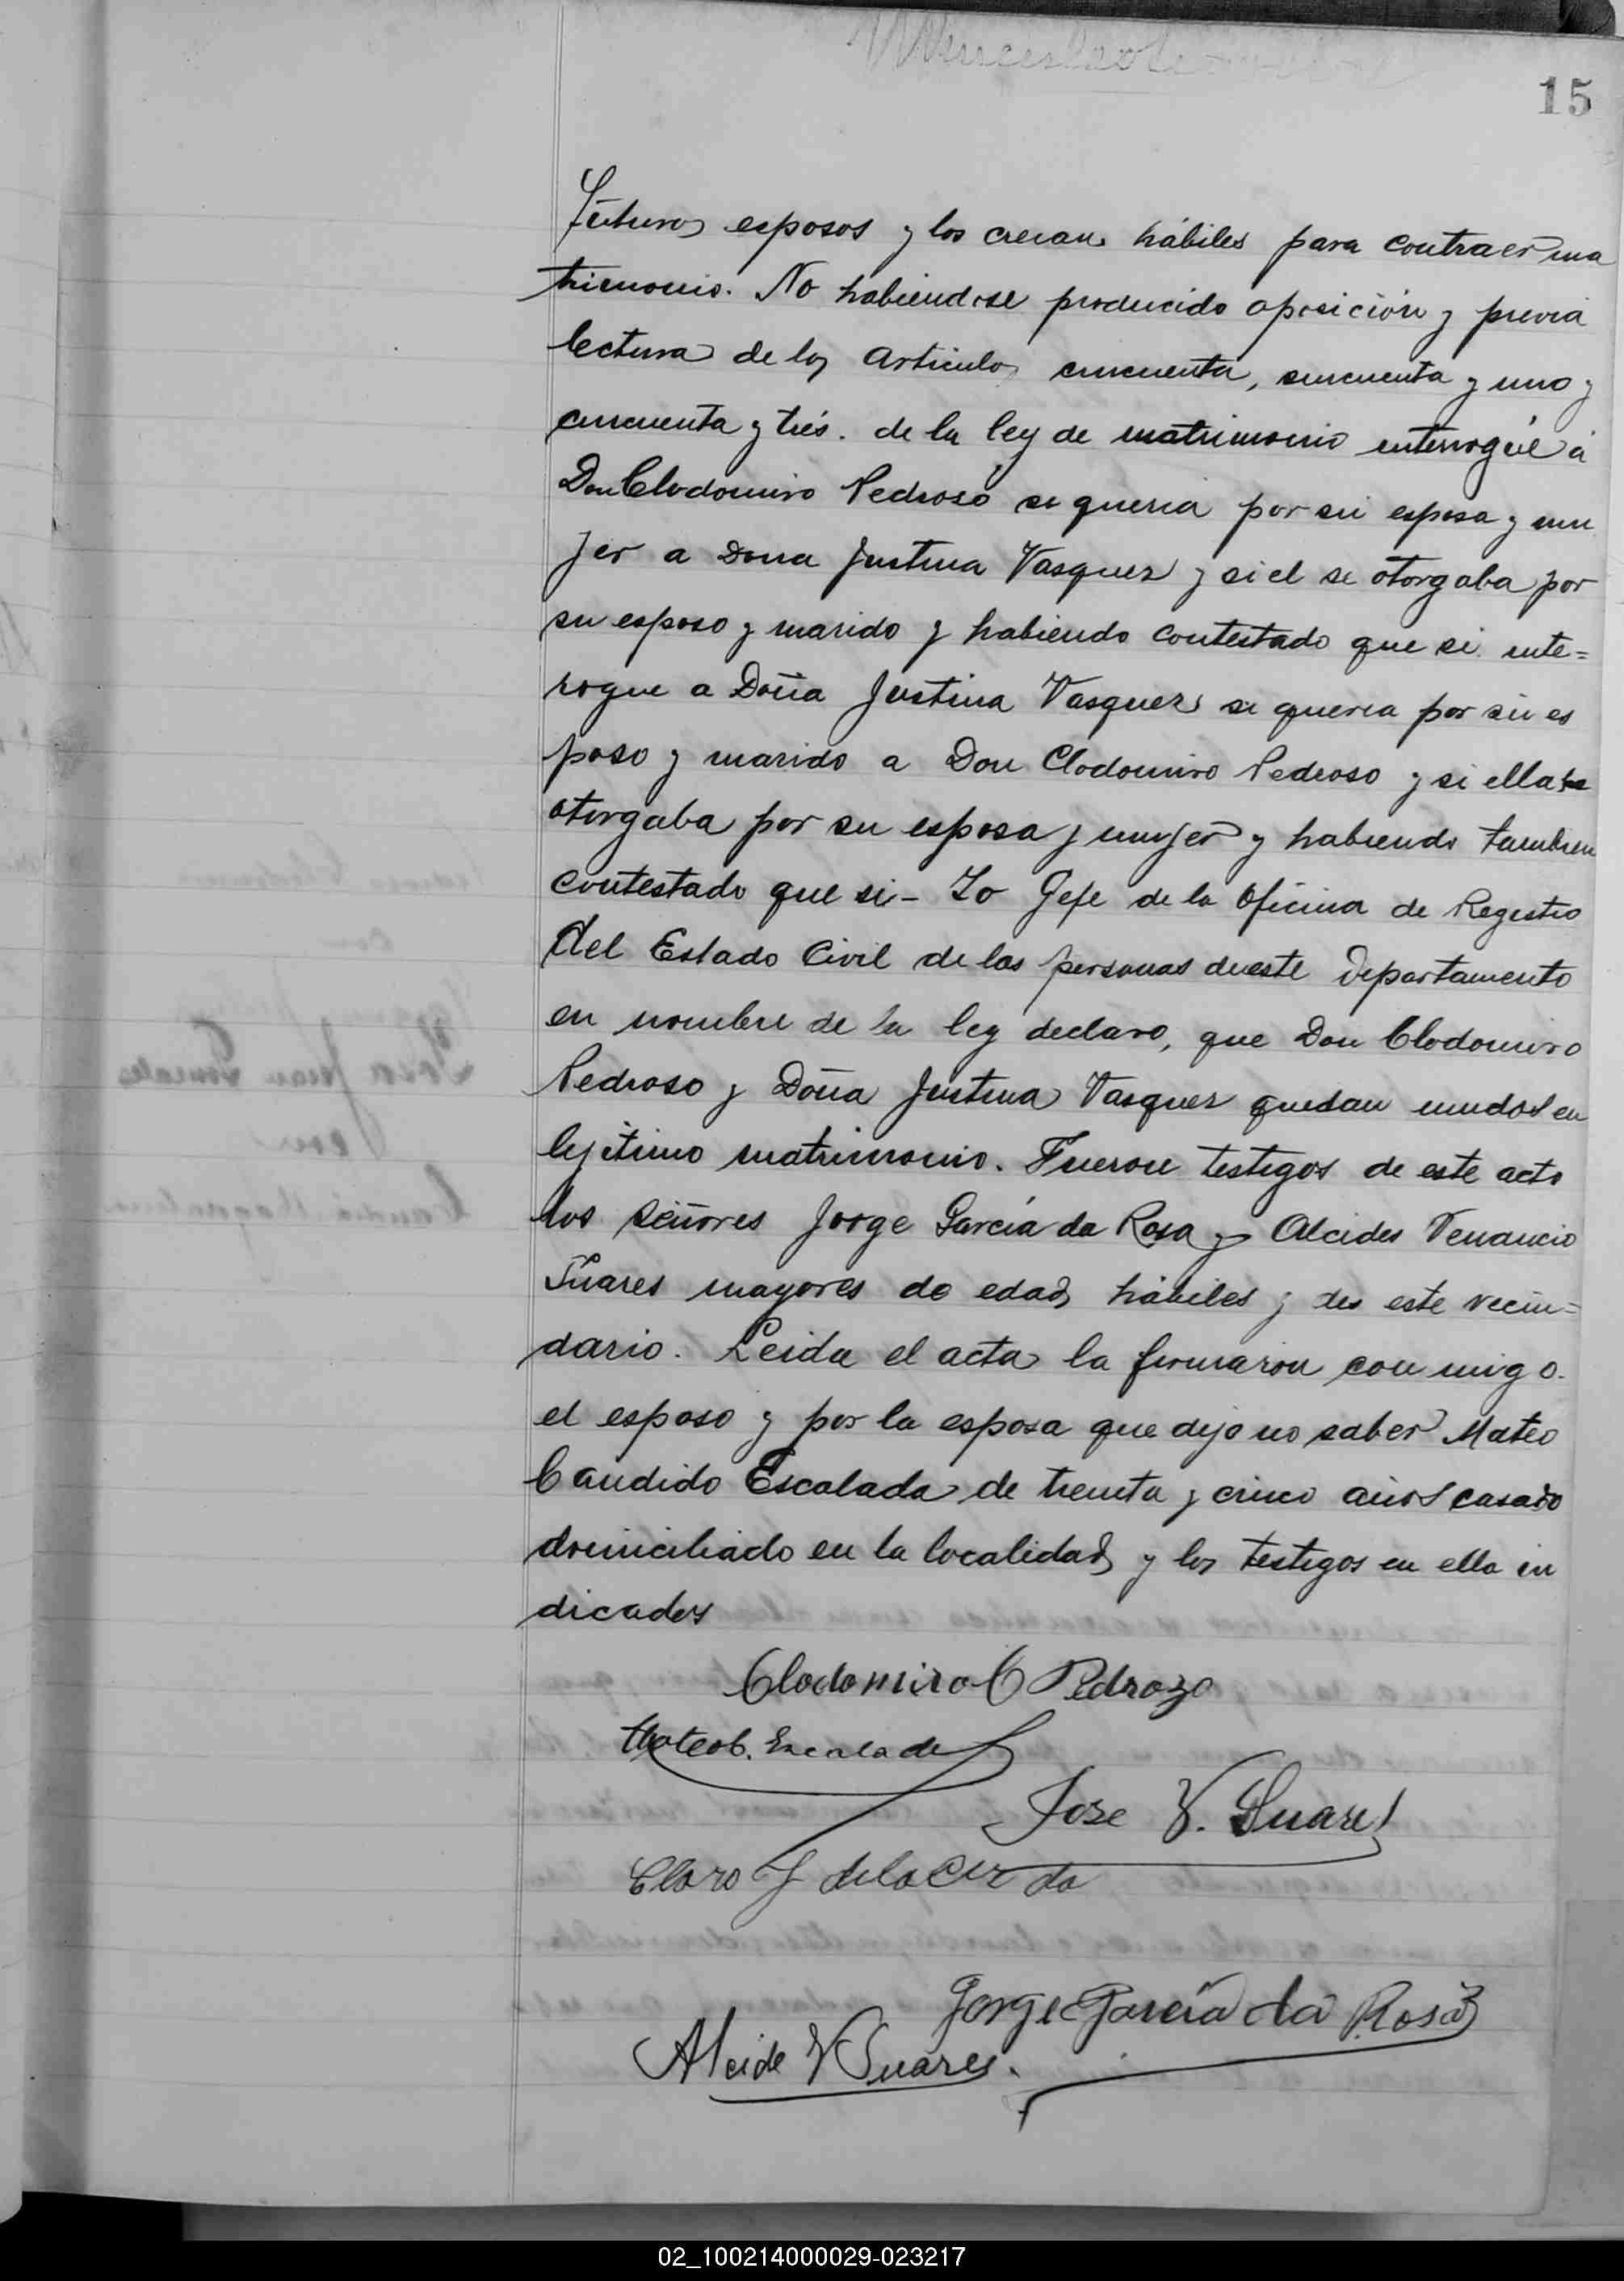 15
futuros esposos y los creian hábiles para contraer ma
trimonio. No habiendose producido oposición y previa
lectura de los articulos cincuenta, cincuenta y uno y
cincuenta y trés. de la ley de matrimonio interrogué á
Don Clodomiro Pedroso si queria por su esposa y mu
jer a Dona Justina Vasquez y si el se otorgaba por
su esposo y marido y habiendo contestado que si inte=
rogue a Doña Justina Vasquez si queria por su es
poso y marido a Don Clodomiro Pedroso y si ella se
otorgaba por su esposa y mujer y habiendo tambien
contestado que si - Yo Gefe de la Oficina de Registro
del Estado Civil de las personas de este Departamento
en nombre de la ley declaro, que Don Clodomiro
Pedroso y Doña Justina Vasquez quedan unidos en
lejitimo matrimonio. Fueron testigos de este acto
los señores Jorge García da Rosa y Alcides Venancio
Suares mayores de edad, hábiles y de este vecin=
dario. Leida el acta la firmaron conmigo.
el esposo y por la esposa que dijo no saber Mateo
Candido Escalada de treinta y cinco años casado
domiciliado en la localidad, y los testigos en ella in
dicados
Clodomiro C Pedrozo
Mateo C. Escalada
Jose V. Suares
Claro J de la Cerda
Jorge García da Rosa
Alcide V Suares.
02_100214000029-023217